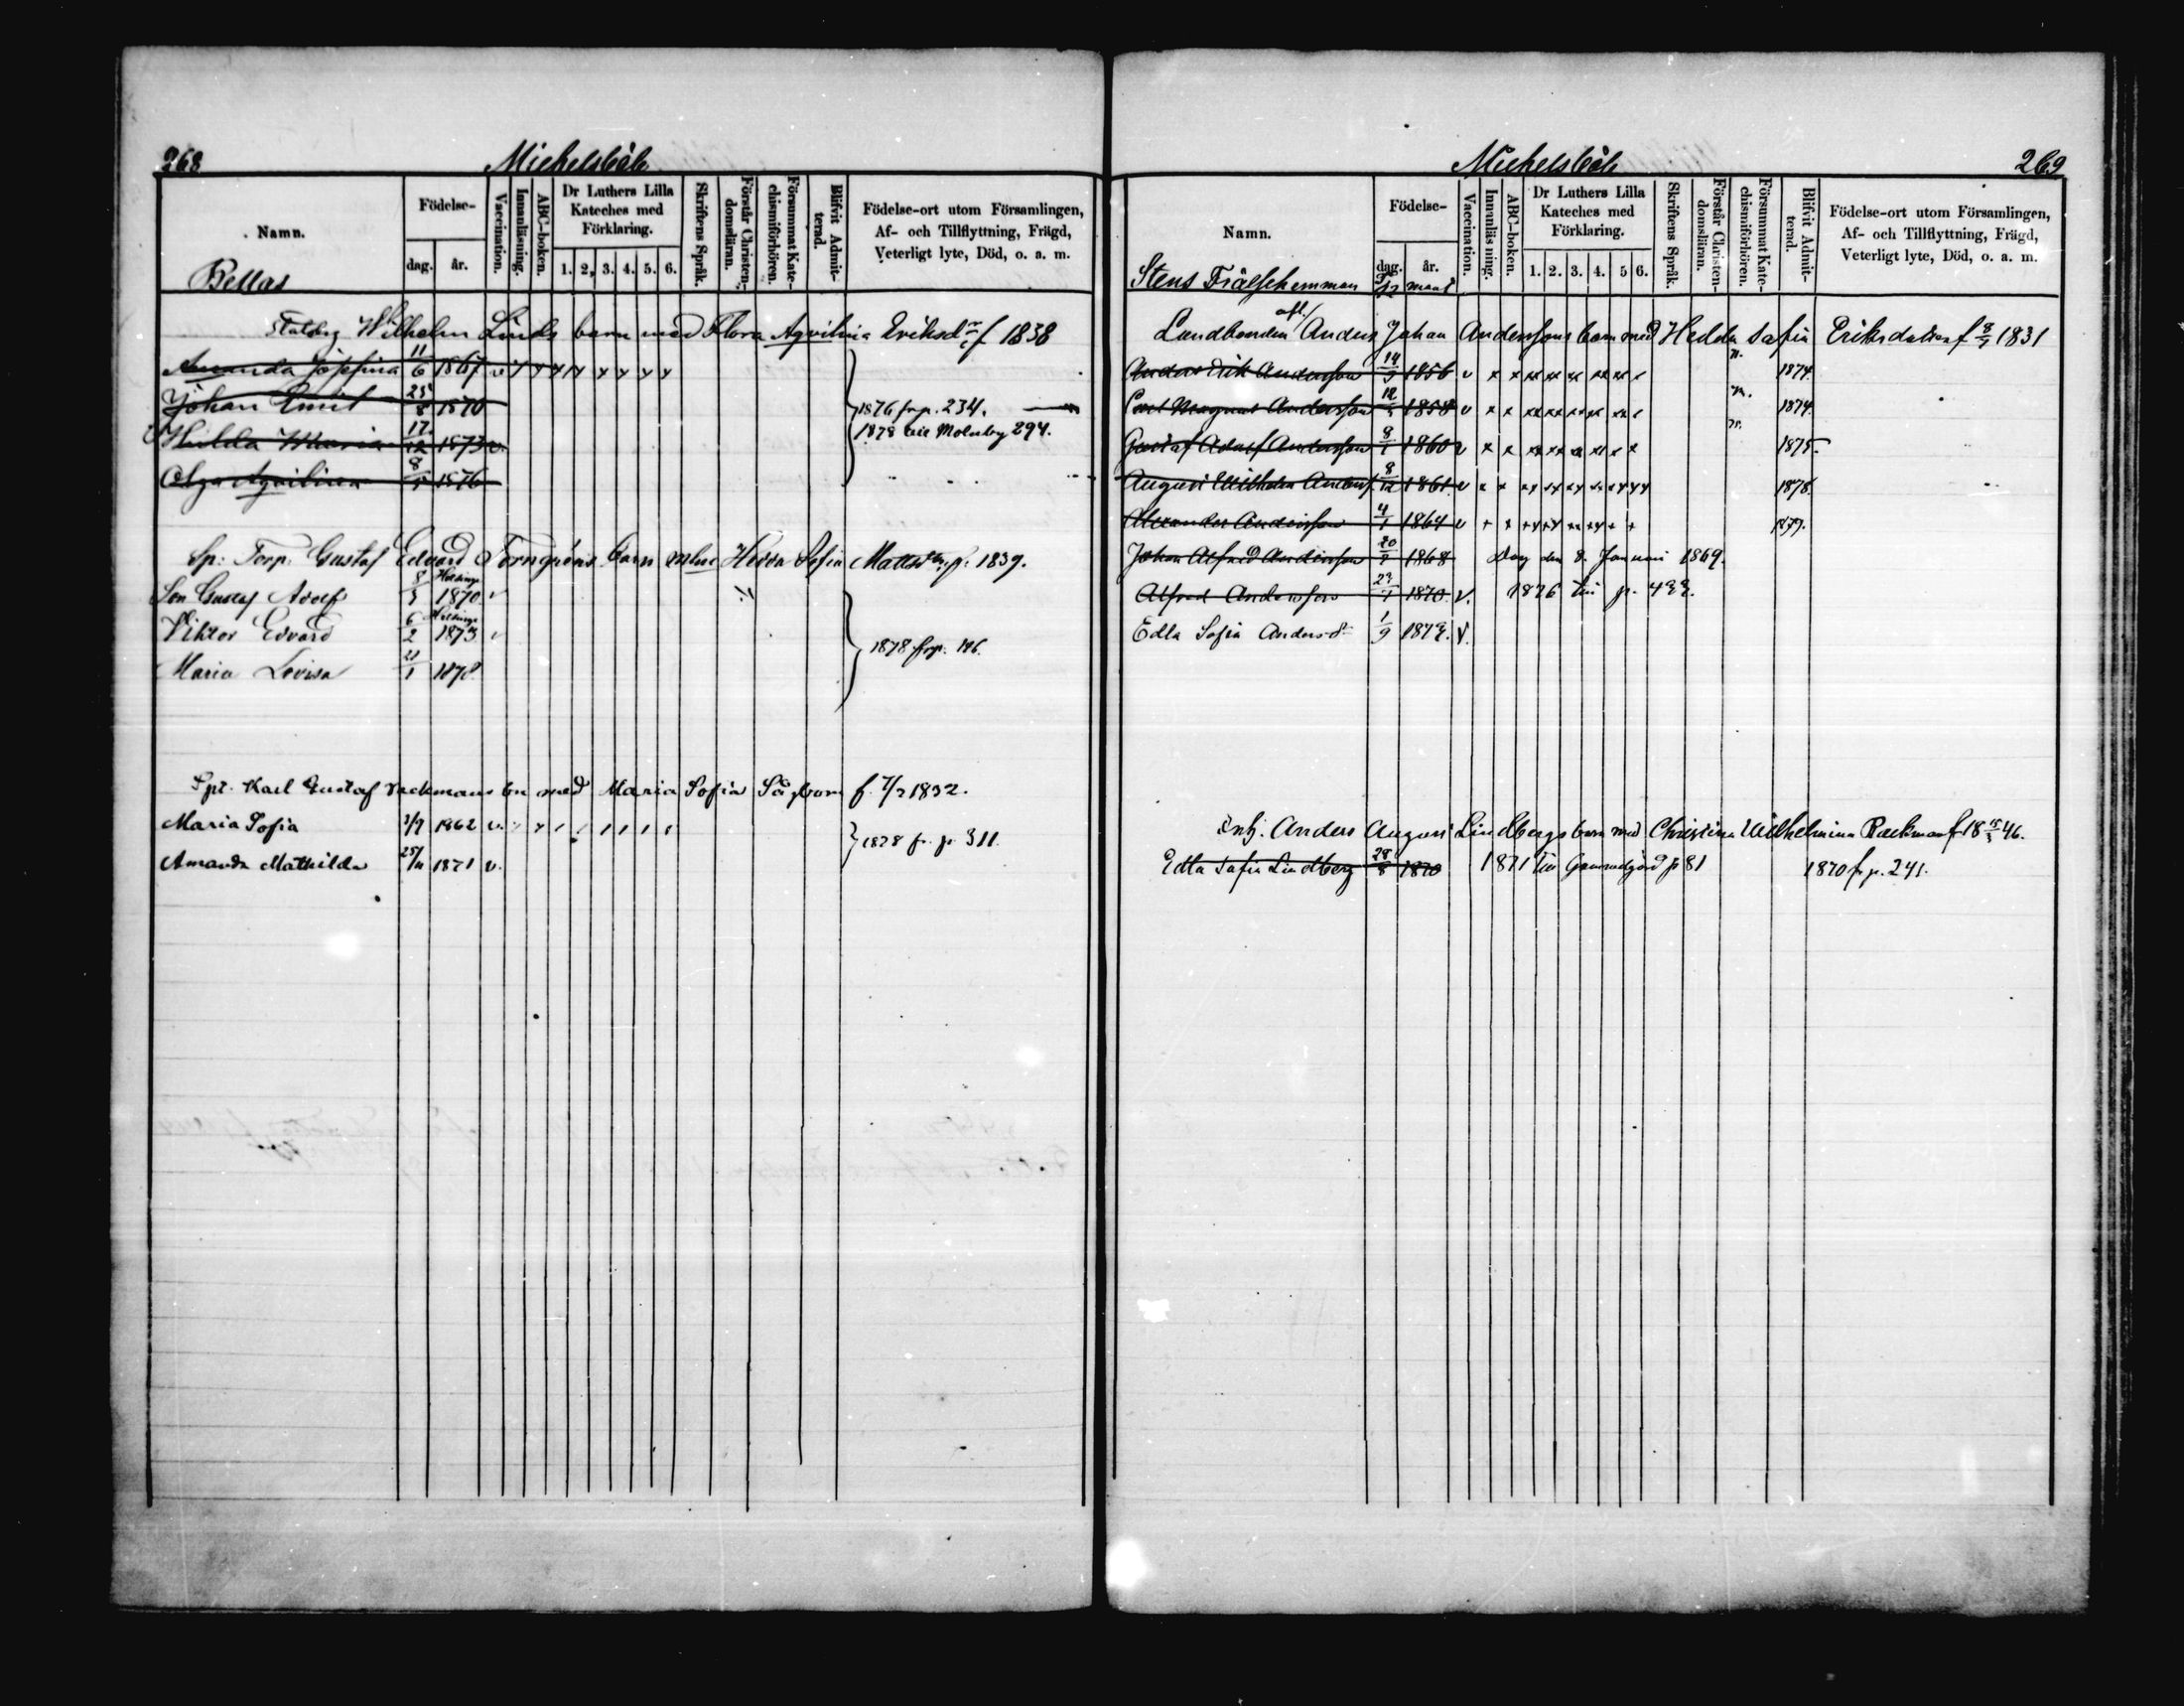 268 Michelsböle
Namn. Födelse- dag. år. Vaccination. Innanläsning. ABC-boken. Dr Luthers Lilla Kateches med Förklaring. 1. 2. 3. 4. 5. 6. Skriftens Språk. Förstår Christendomsläran. Försummat Katechismiförhören. Blifvit Admitterad. Födelse-ort utom Församlingen, Af- och Tillflyttning, Frägd, Veterligt lyte, Död, o. a. m.
Bellas
Wilhelm Linds barn med Flora Aqvilina Eriksd:r f 1838
Amanda Josefina 11/6 1867 v
Johan Emil 25/8 1870 1876 fr p. 234.
Hulda Maria 17/12 1873 v. 1878 till Molnby 294.
Olga Aqvilina 8/5 1876
Sp: Torp: Gustaf Edvard Törnqvists barn m hu Hedda Sofia Mattsdr f. 1839.
Son Gustaf Adolf 8/3 1870 v
Viktor Edvard 6/2 1873 v
1878 fr p. 186.
Maria Lovisa 21/1 1878
Karl Gustaf Backmans bn med Maria Sofia f. 7/2 1832.
Maria Sofia 1862 v.
1878 fr. p. 311.
Amanda Mathilda 25/11 1871 v.
Michelsböle 269
Namn. Födelse- dag. år. Vaccination. Innanläsning. ABC-boken. Dr Luthers Lilla Kateches med Förklaring. 1. 2. 3. 4. 5 6. Skriftens Språk. Förstår Christendomsläran. Försummat Katechismiförhören. Blifvit Admitterad. Födelse-ort utom Församlingen, Af- och Tillflyttning, Frägd, Veterligt lyte, Död, o. a. m.
Stens Frälsehemman
afl.
Landbonden Anders Johan Anderssons barn med Hedda Sofia Eriksdotter f 8/5 1831
Anders Erik Andersson 14/3 1856 v 1874.
Carl Magnus Andersson 1858 v 1874.
Gustaf Adolf Andersson 8/1 1860 v 1875.
August Wilhelm Anderss 8/12 1861 v 1878.
Alexander Andersson 4/1 1864 v 1879.
Johan Alfred Andersson 1868 Dog den 8 Januari 1869.
Alfred Andersson 1870 v. 1876 till p.
Edla Sofia Anders dr 1/9 v.
Inh. Anders August Lindbergs barn med Christina Wilhelmina Backman f 18 15/3 46.
Edla Sofia Lindberg 28/8 1870 1871 till Gammelgård p 81 1870 fr p. 241.